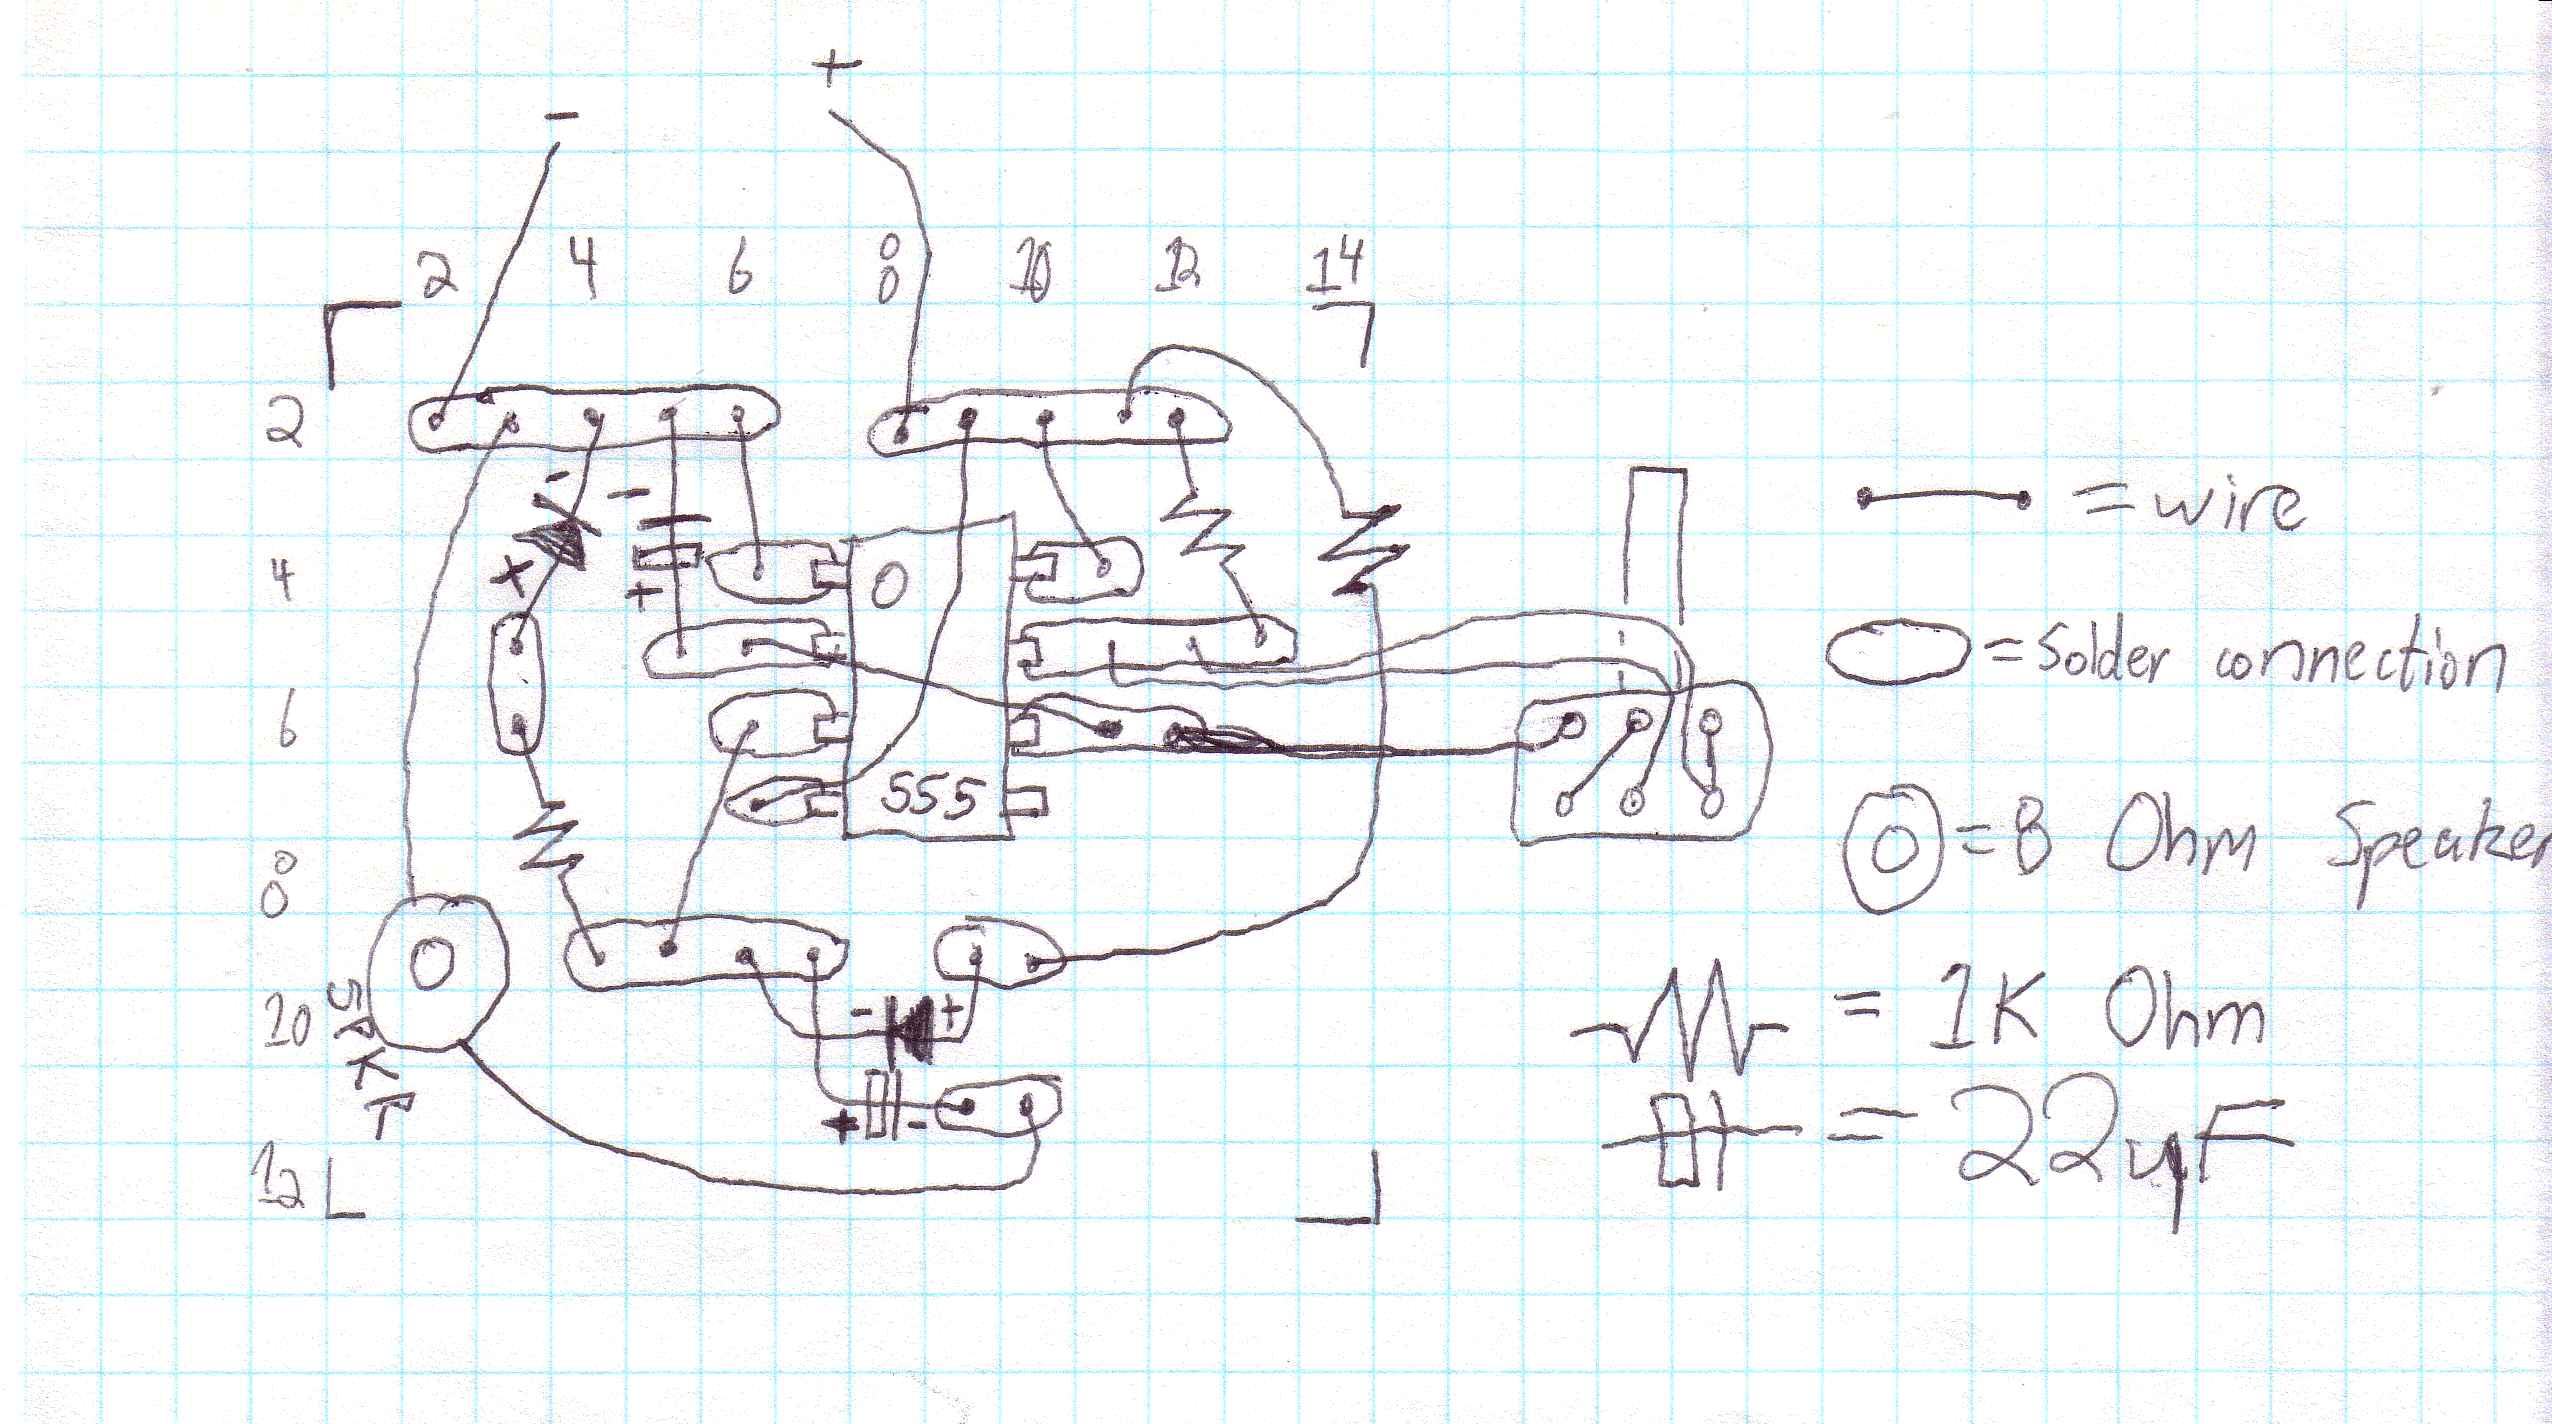 +
-
2 4 6 8 10 12 14
2
- -
4
+ +
6
555
8
- +
10
SPKR
+ -
12
= wire
= Solder connection
= 8 Ohm Speaker
= 1K Ohm
= 22uF